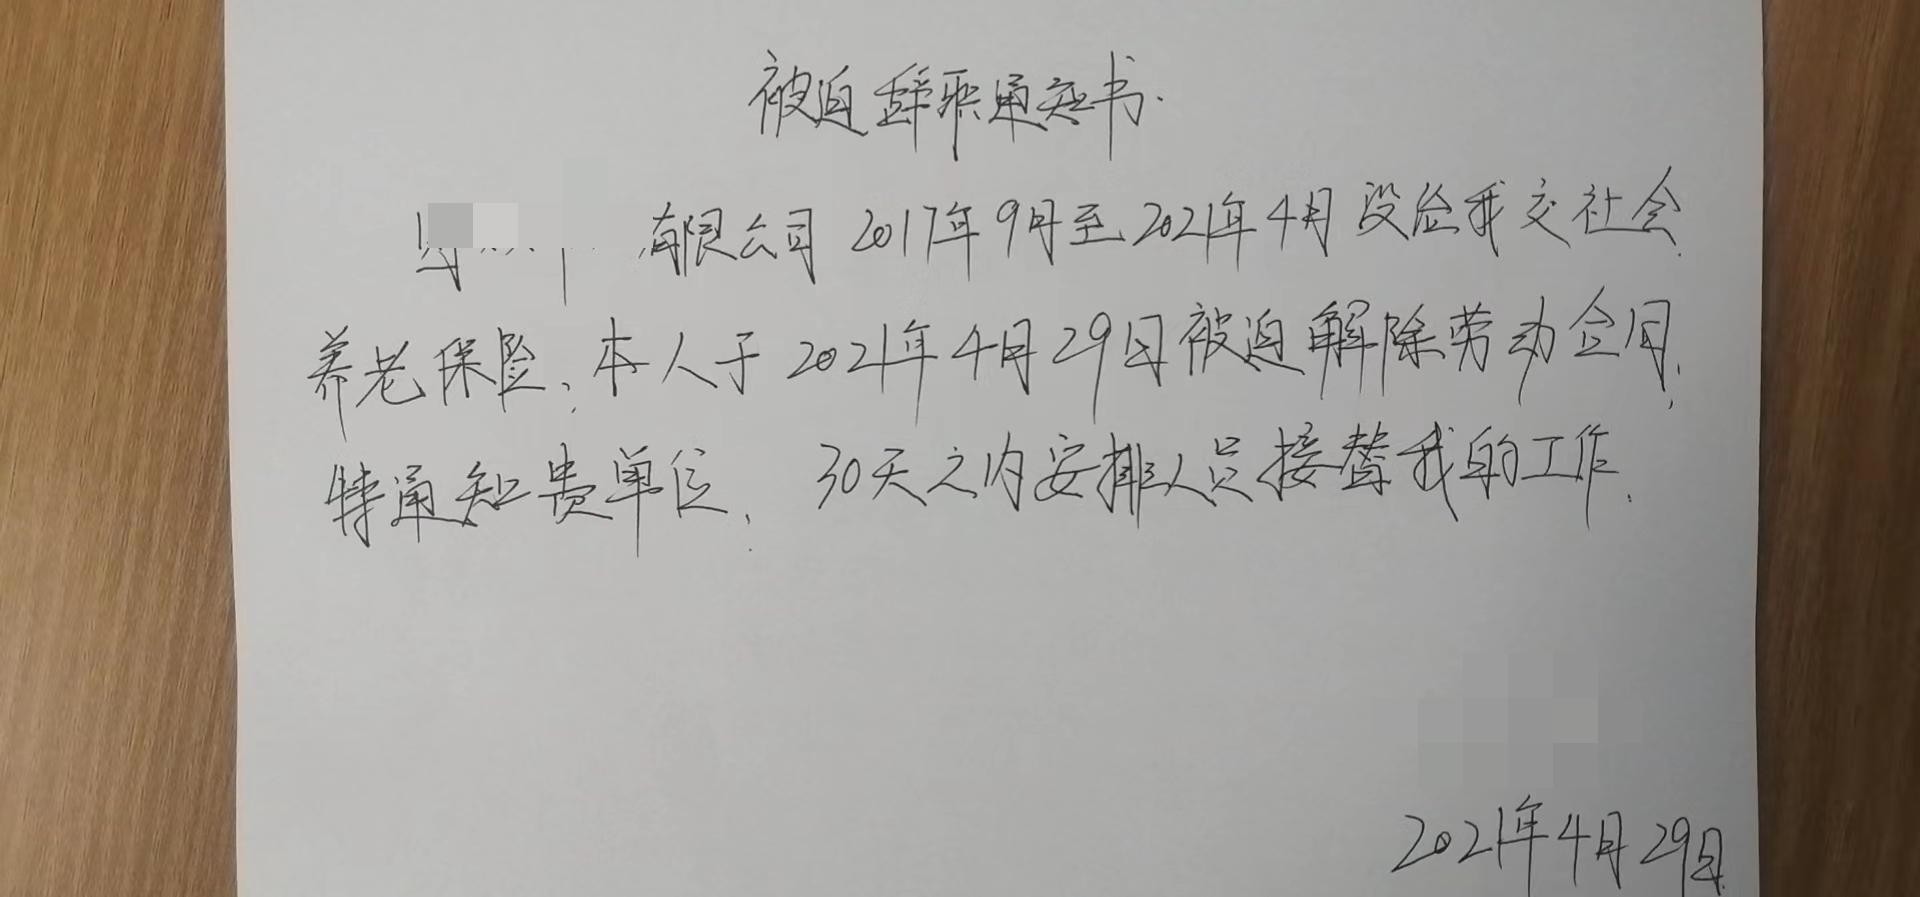 被迫辞职通知书.
有限公司 2017年9月至2021年4月没给我交社会
养老保险, 本人于2021年4月29日被迫解除劳动合同,
特通知贵单位, 30天之内安排人员接替我的工作.
2021年4月29日